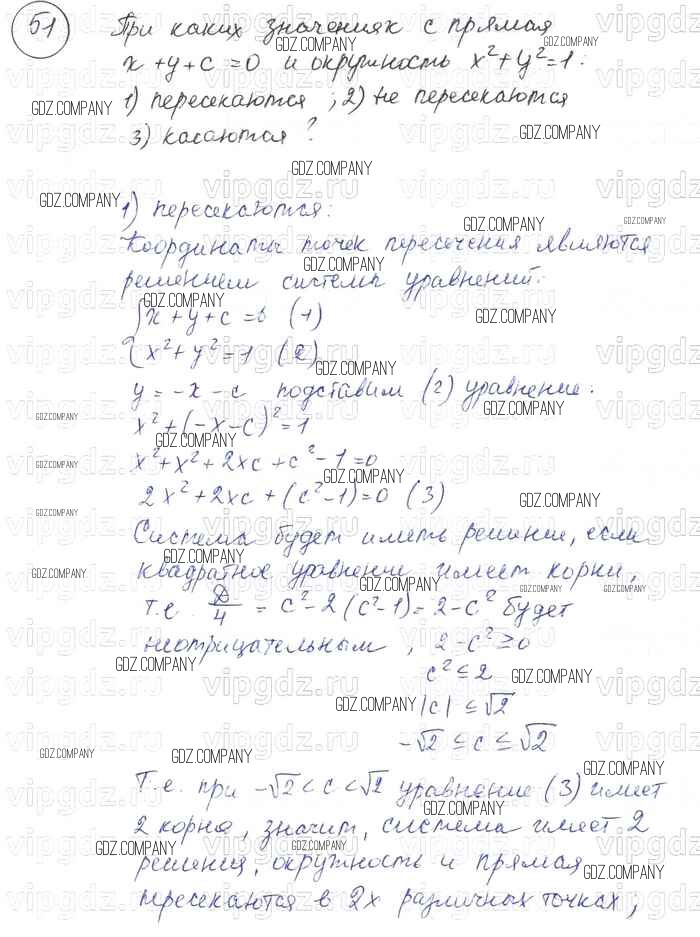 51 При каких значениях с прямая
x + y + c = 0 и окружность x² + y² = 1 :
1) пересекаются ; 2) не пересекаются
3) касаются ?
1) пересекаются:
Координаты точек пересечения являются
решением системы уравнений:
{ x + y + c = 0 (1)
{ x² + y² = 1 (2)
y = -x - c подставим (2) уравнение:
x² + (-x - c)² = 1
x² + x² + 2xc + c² - 1 = 0
2x² + 2xc + (c² - 1) = 0 (3)
Система будет иметь решение, если
квадратное уравнение имеет корни,
т.е. D/4 = c² - 2(c² - 1) = 2 - c² будет
неотрицательным, 2 - c² ≥ 0
c² ≤ 2
|c| ≤ √2
-√2 ≤ c ≤ √2
Т.е. при -√2 < c < √2 уравнение (3) имеет
2 корня, значит, система имеет 2
решения, окружность и прямая
пересекаются в 2х различных точках,
GDZ.COMPANY
vipgdz.ru